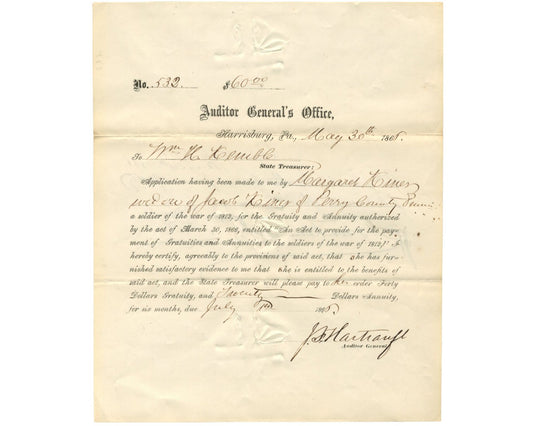 No. 532 $60.00
Auditor General's Office,
Harrisburg, Pa., May 30th 1868.
To Wm H Kemble
State Treasurer:
Application having been made to me by Margaret Kiner
widow of Jacob Kiner of Perry County Penna
a soldier of the war of 1812, for the Gratuity and Annuity authorized
by the act of March 30, 1866, entitled "An Act to provide for the pay-
ment of Gratuities and Annuities to the soldiers of the war of 1812," I
hereby certify, agreeably to the provisions of said act, that she has fur-
nished satisfactory evidence to me that she is entitled to the benefits of
said act, and the State Treasurer will please pay to her order Forty
Dollars Gratuity, and Twenty Dollars Annuity,
for six months, due July 1st 1868.
J F Hartranft
Auditor General